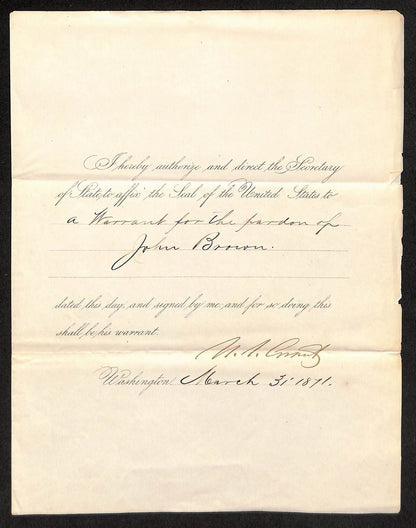 I hereby authorize and direct the Secretary
of State to affix the Seal of the United States to
a Warrant for the pardon of
John Brown.
dated this day, and signed by me, and for so doing this
shall be his warrant.
U. S. Grant
Washington March 31 1871.